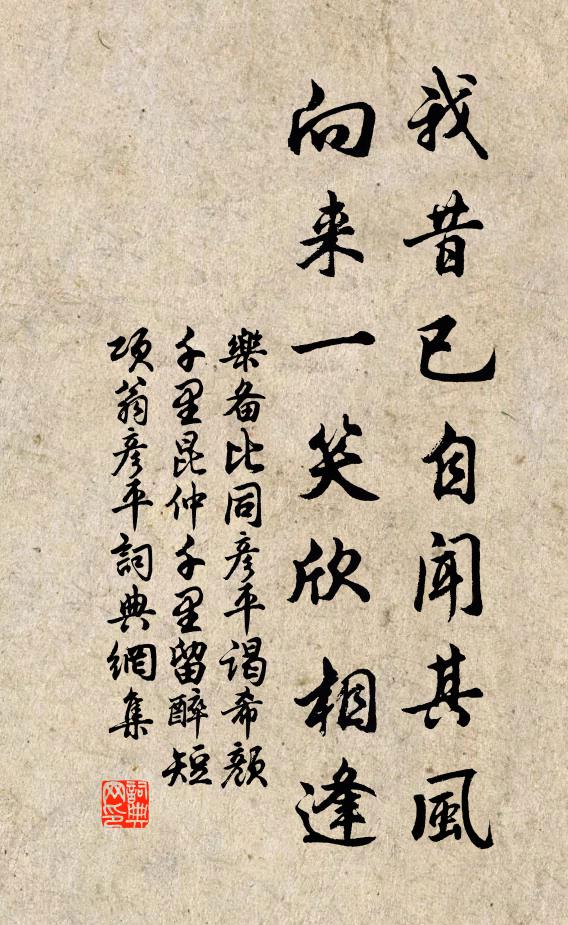 我昔已自闻其風
向来一笑欣相逢
樂备比同彦平谒希颜
千里昆仲千里留醉短
项翁彦平詞典網集
詞典
网印